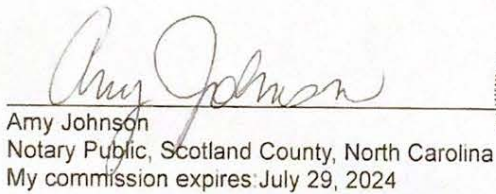 Amy Johnson
Amy Johnson
Notary Public, Scotland County, North Carolina
My commission expires:July 29, 2024